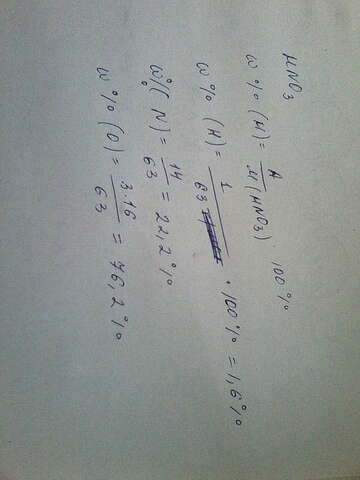 HNO3
w% (H) = A / M(HNO3) 100%
w% (H) = 1 / 63 · 100% = 1,6%
w% (N) = 14 / 63 = 22,2%
w% (O) = 3.16 / 63 = 76,2%